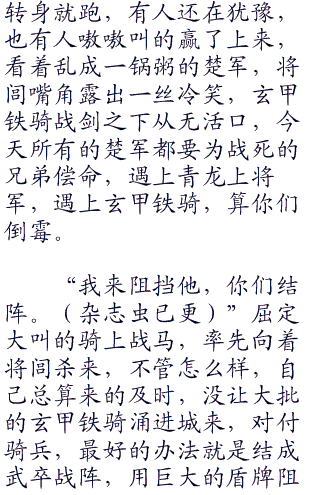 转身就跑，有人还在犹豫，
也有人嗷嗷叫的赢了上来，
看着乱成一锅粥的楚军，将
闾嘴角露出一丝冷笑，玄甲
铁骑战剑之下从无活口，今
天所有的楚军都要为战死的
兄弟偿命，遇上青龙上将
军，遇上玄甲铁骑，算你们
倒霉。
“我来阻挡他，你们结
阵。（杂志虫已更）”屈定
大叫的骑上战马，率先向着
将闾杀来，不管怎么样，自
己总算来的及时，没让大批
的玄甲铁骑涌进城来，对付
骑兵，最好的办法就是结成
武卒战阵，用巨大的盾牌阻